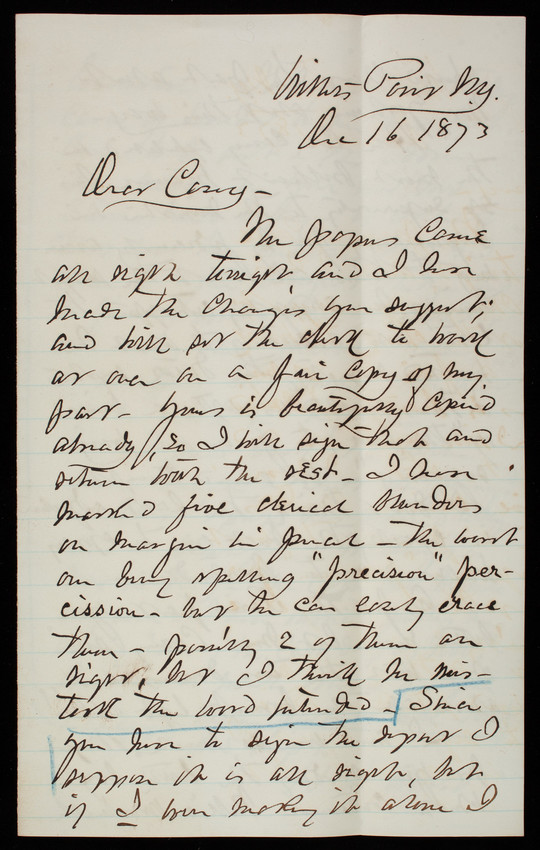 Willets Point N.Y.
Dec 16 1873
Dear Casey -
The papers came
all right tonight and I have
made the changes you suggest;
and will set the clerk to work
at once on a fair copy of my
part - Yours is beautifully copied
already, so I will sign that and
return with the rest - I have
marked five clerical blunders
on margin in pencil - the worst
one being spelling "precision" per-
cission - but he can easily erase
them - possibly 2 of them are
right, but I think he mis-
took the word intended - Since
you have to sign the report I
suppose it is all right, but
if I were making it alone I